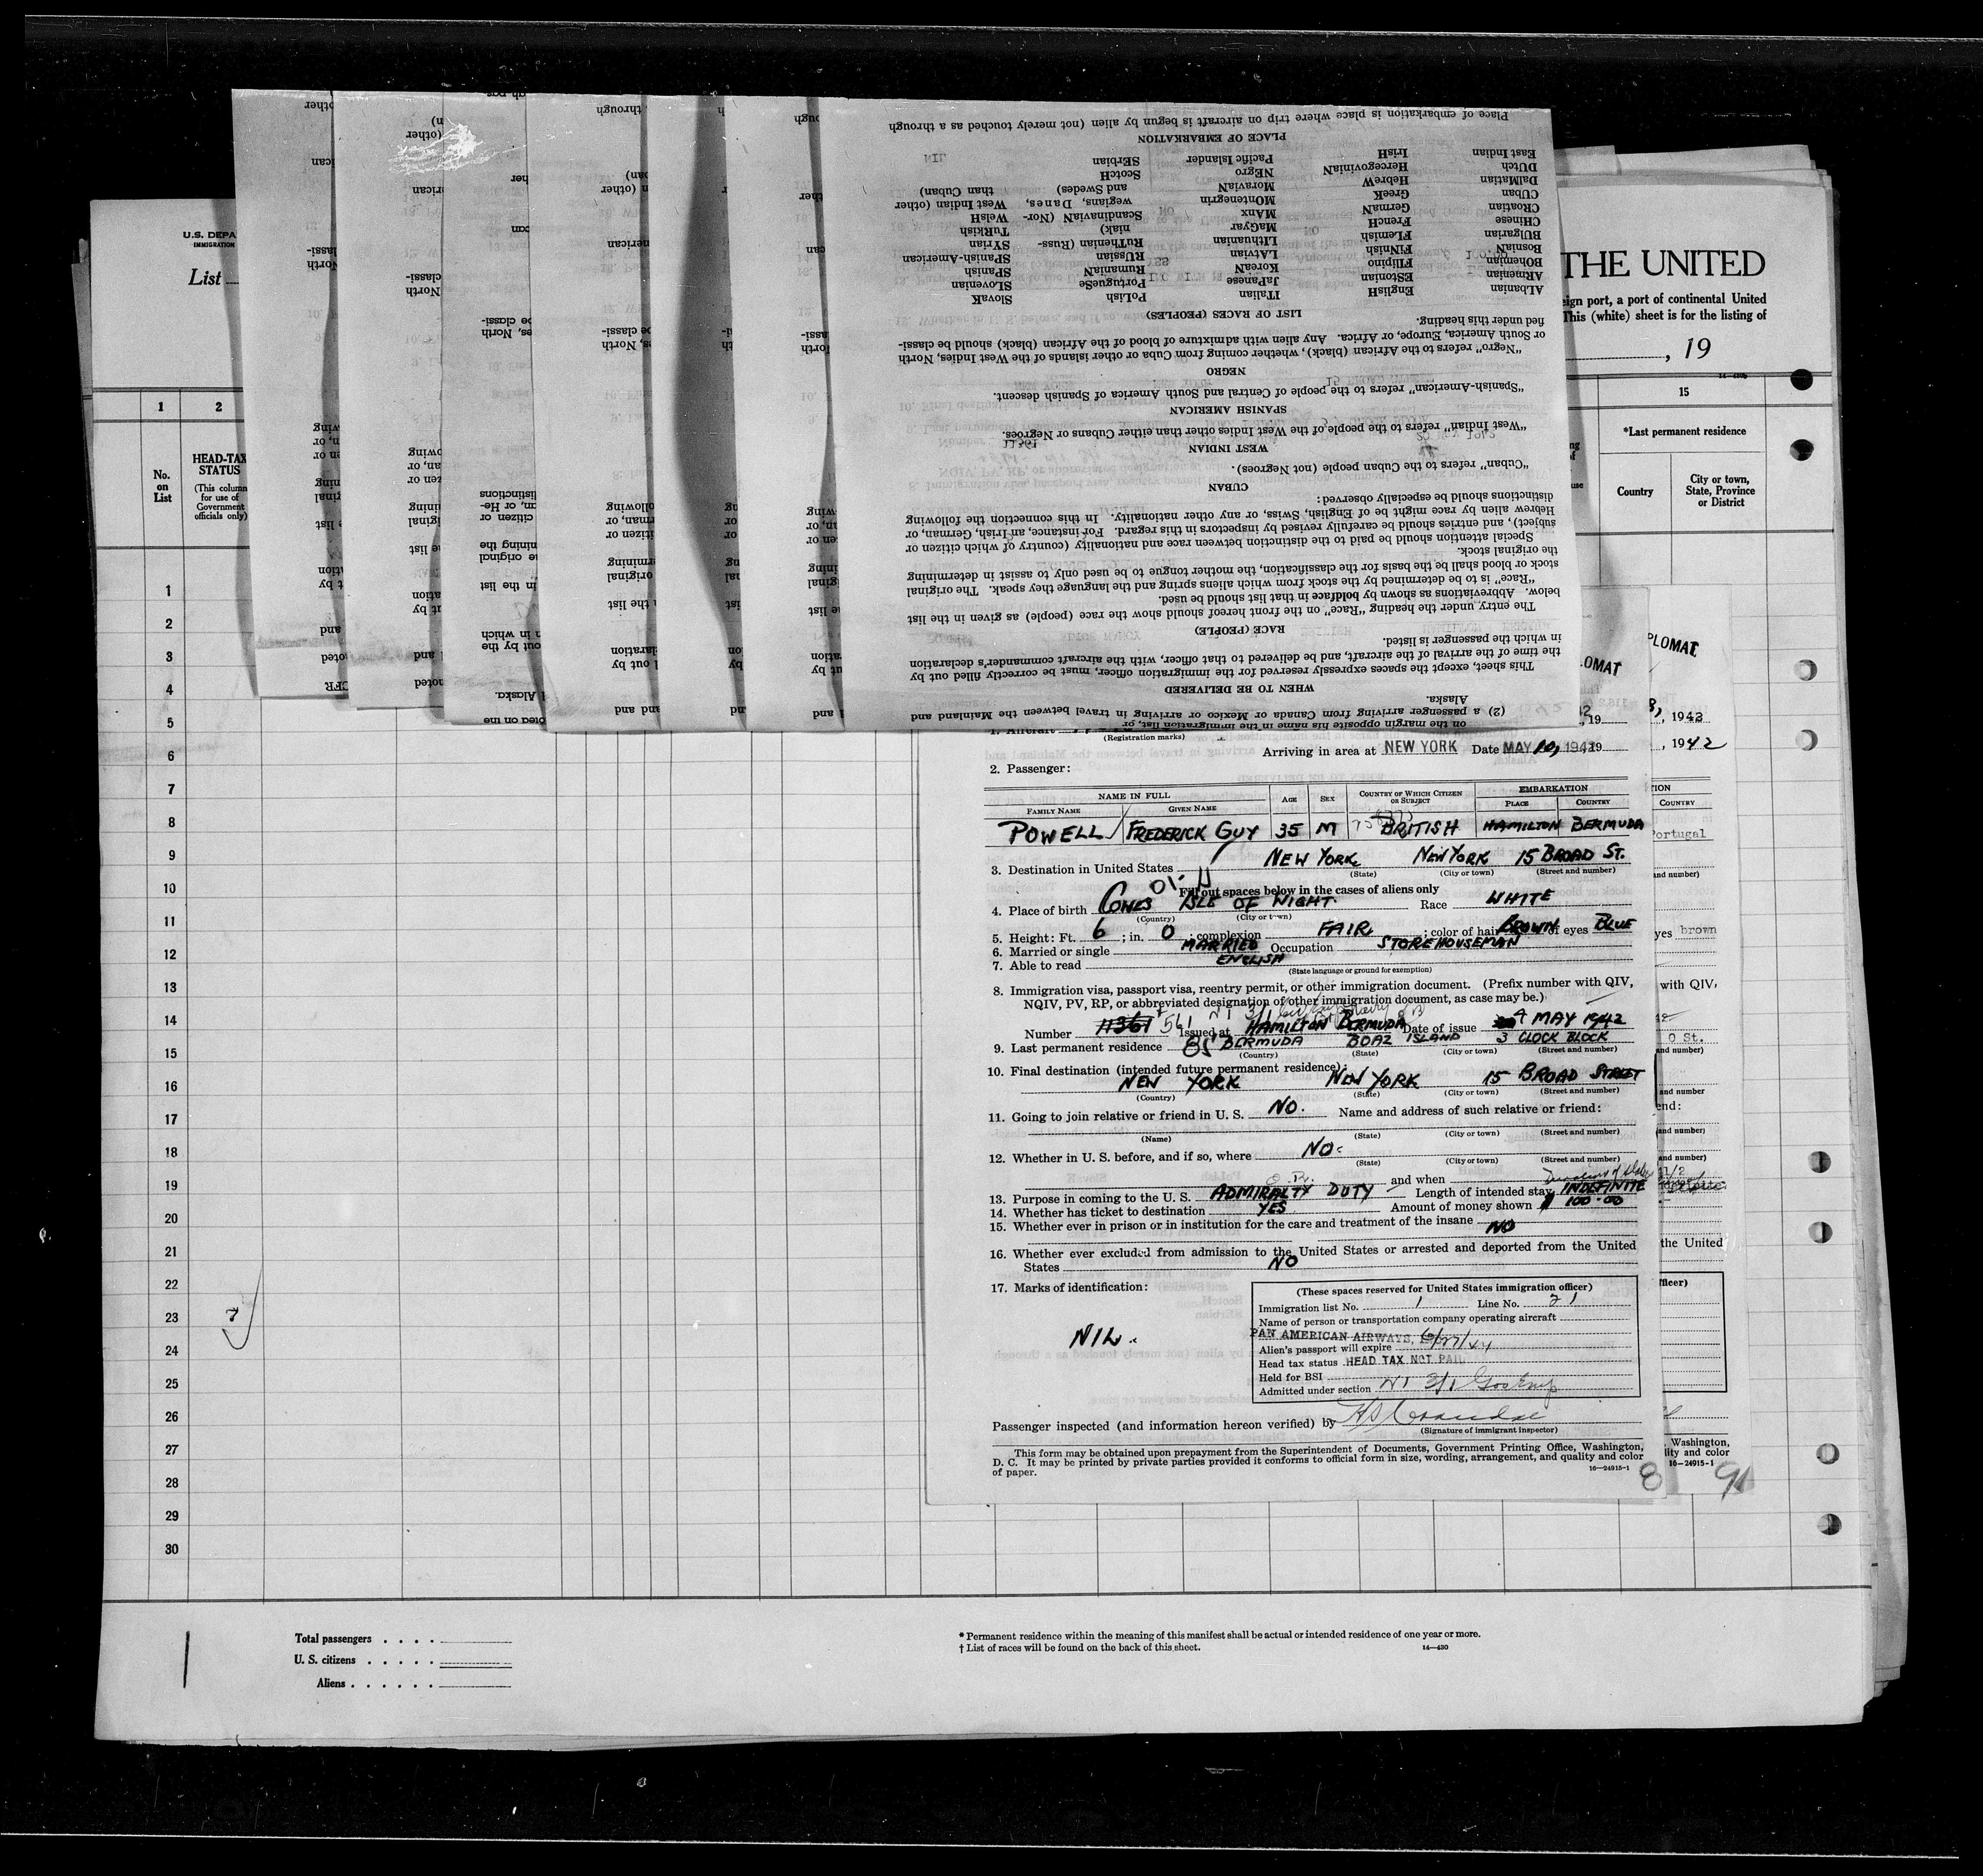 U.S. DEPA
IMMIGRATION
List
THE UNITED
eign port, a port of continental United
This (white) sheet is for the listing of
, 19
1
2
15
No.
on
List
HEAD-TAX
STATUS
(This column
for use of
Government
officials only)
*Last permanent residence
Country
City or town,
State, Province
or District
1
2
3
4
5
6
7
8
9
10
11
12
13
14
15
16
17
18
19
20
21
22
23
24
25
26
27
28
29
30
Place of embarkation is place where trip on aircraft is begun by alien (not merely touched as a through
PLACE OF EMBARKATION
East Indian IrisH Pacific Islander SErbian
DUtch HercegovinaN NEgro ScotcH
DalMatian HebreW MoravaN and Swedes) than Cuban)
CUban GreeK MOntenegrin wegians, Danes, West Indian (other
CRoatian GermaN MAnx ScandinaviaN (Nor- WelsH
CHinese FrencH MaGyar niak) TurKish
BUlgarian FLemish LIthuanian RuThenian (Russ- SYrian
BosniaN FiNnish LAtvian RUssian SPanish-American
BOhemian FIlipino KoreaN RumaniaN SPanish
ARmenian EStonian JaPanese PortugueSe SLovenian
ALbanian EnglisH ITalian PoLish SlovaK
LIST OF RACES (PEOPLES)
fied under this heading.
or South America, Europe, or Africa. Any alien with admixture of blood of the African (black) should be classi-
"Negro" refers to the African (black), whether coming from Cuba or other islands of the West Indies, North
NEGRO
"Spanish-American" refers to the people of Central and South America of Spanish descent.
SPANISH AMERICAN
"West Indian" refers to the people of the West Indies other than either Cubans or Negroes.
WEST INDIAN
"Cuban" refers to the Cuban people (not Negroes).
CUBAN
distinctions should be especially observed:
Hebrew alien by race might be of English, Swiss, or any other nationality. In this connection the following
subject), and entries should be carefully revised by inspectors in this regard. For instance, an Irish, German, or
Special attention should be paid to the distinction between race and nationality (country of which citizen or
the original stock.
stock or blood shall be the basis for the classification, the mother tongue to be used only to assist in determining
"Race" is to be determined by the stock from which aliens spring and the language they speak. The original
below. Abbreviations as shown by boldface in that list should be used.
The entry under the heading "Race" on the front hereof should show the race (people) as given in the list
RACE (PEOPLE)
in which the passenger is listed.
the time of the arrival of the aircraft, and be delivered to that officer, with the aircraft commander's declaration
This sheet, except the spaces expressly reserved for the immigration officer, must be correctly filled out by
WHEN TO BE DELIVERED
Alaska.
(2) a passenger arriving from Canada or Mexico or arriving in travel between the Mainland and
on the margin opposite his name in the immigration list, or
(Registration marks)
Arriving in area at NEW YORK Date MAY 10, 1942 19
2. Passenger:
NAME IN FULL
FAMILY NAME GIVEN NAME AGE SEX COUNTRY OF WHICH CITIZEN OR SUBJECT EMBARKATION PLACE COUNTRY
POWELL FREDERICK GUY 35 M BRITISH HAMILTON BERMUDA
3. Destination in United States NEW YORK NEW YORK 15 BROAD ST.
(State) (City or town) (Street and number)
Fill out spaces below in the cases of aliens only
4. Place of birth COWES ISLE OF WIGHT. Race WHITE
(Country) (City or town)
5. Height: Ft. 6 ; in. 0 ; complexion FAIR ; color of hair BROWN of eyes BLUE
6. Married or single MARRIED Occupation STOREHOUSEMAN
7. Able to read ENGLISH
(State language or ground for exemption)
8. Immigration visa, passport visa, reentry permit, or other immigration document. (Prefix number with QIV,
NQIV, PV, RP, or abbreviated designation of other immigration document, as case may be.)
Number 11361 561 Issued at HAMILTON BERMUDA Date of issue 4 MAY 1942
9. Last permanent residence 85 BERMUDA BOAZ ISLAND 3 CLOCK BLOCK
(Country) (State) (City or town) (Street and number)
10. Final destination (intended future permanent residence):
NEW YORK NEW YORK 15 BROAD STREET
(Country) (State) (City or town) (Street and number)
11. Going to join relative or friend in U. S. NO. Name and address of such relative or friend:
(Name) (State) (City or town) (Street and number)
12. Whether in U. S. before, and if so, where NO.
(State) (City or town) (Street and number)
and when
13. Purpose in coming to the U. S. ADMIRALTY DUTY Length of intended stay INDEFINITE
14. Whether has ticket to destination YES Amount of money shown $ 100.00
15. Whether ever in prison or in institution for the care and treatment of the insane NO
16. Whether ever excluded from admission to the United States or arrested and deported from the United
States NO
17. Marks of identification:
NIL.
(These spaces reserved for United States immigration officer)
Immigration list No. 1 Line No. 21
Name of person or transportation company operating aircraft
PAN AMERICAN AIRWAYS,
Alien's passport will expire 6/27/44
Head tax status HEAD TAX NOT PAID
Held for BSI
Admitted under section
Passenger inspected (and information hereon verified) by
(Signature of immigrant inspector)
This form may be obtained upon prepayment from the Superintendent of Documents, Government Printing Office, Washington,
D. C. It may be printed by private parties provided it conforms to official form in size, wording, arrangement, and quality and color
of paper.
16—24915-1
8
PLOMAT
LOMAT
, 1942
, 1942
COUNTRY
Portugal
and number)
yes brown
with QIV,
O St.
and number)
and number
end:
and number)
and number)
the United
fficer)
, Washington,
lity and color
16—24915-1
91
Total passengers . . . .
U. S. citizens . . . . .
Aliens . . . . . .
* Permanent residence within the meaning of this manifest shall be actual or intended residence of one year or more.
† List of races will be found on the back of this sheet.
14—430